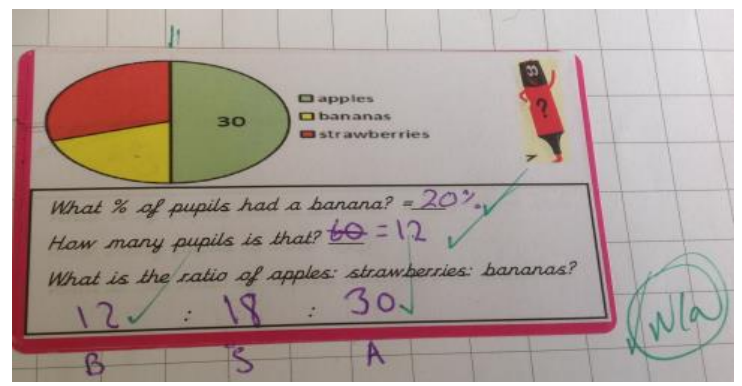 30
apples
bananas
strawberries
?
What % of pupils had a banana? = 20%
How many pupils is that? 60 = 12
What is the ratio of apples: strawberries: bananas?
12 : 18 : 30
B S A